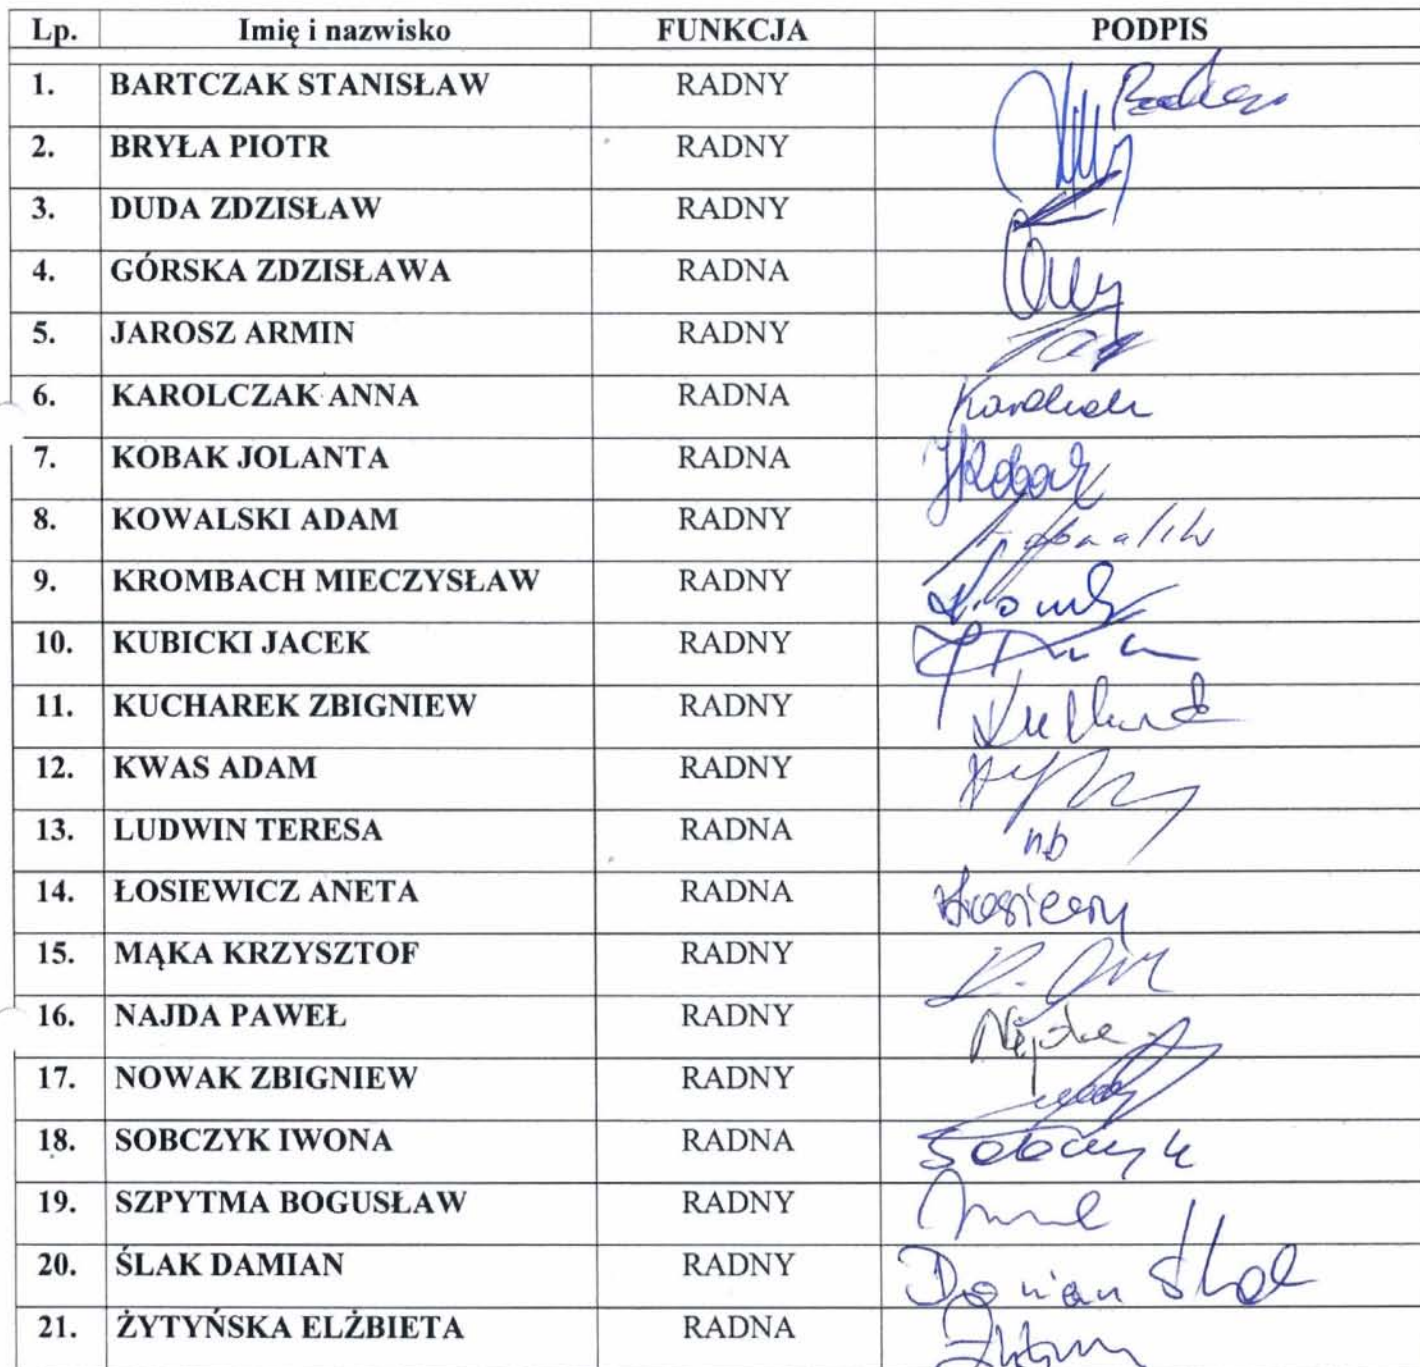 Lp. Imię i nazwisko FUNKCJA PODPIS
1. BARTCZAK STANISŁAW RADNY
2. BRYŁA PIOTR RADNY
3. DUDA ZDZISŁAW RADNY
4. GÓRSKA ZDZISŁAWA RADNA
5. JAROSZ ARMIN RADNY
6. KAROLCZAK ANNA RADNA
7. KOBAK JOLANTA RADNA
8. KOWALSKI ADAM RADNY
9. KROMBACH MIECZYSŁAW RADNY
10. KUBICKI JACEK RADNY
11. KUCHAREK ZBIGNIEW RADNY
12. KWAS ADAM RADNY
13. LUDWIN TERESA RADNA nb
14. ŁOSIEWICZ ANETA RADNA
15. MĄKA KRZYSZTOF RADNY
16. NAJDA PAWEŁ RADNY
17. NOWAK ZBIGNIEW RADNY
18. SOBCZYK IWONA RADNA
19. SZPYTMA BOGUSŁAW RADNY
20. ŚLAK DAMIAN RADNY Damian Ślak
21. ŻYTYŃSKA ELŻBIETA RADNA